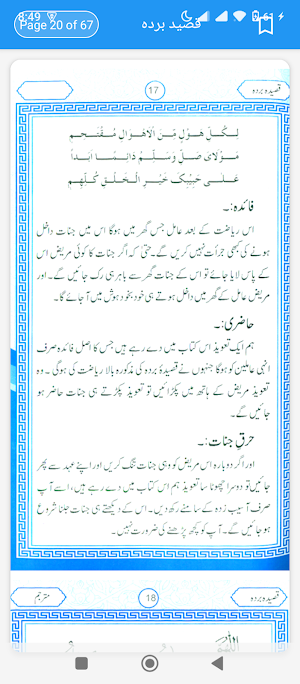 8:49
61
Page 20 of 67
قصید بردہ
17
قصیدہ بردہ
لِكُلِّ هَوْلٍ مِّنَ الْاَهْوَالِ مُقْتَحِمِ
مَوْلَایَ صَلِّ وَسَلِّمْ دَائِمًا اَبَدًا
عَلٰی حَبِیْبِكَ خَیْرِ الْخَلْقِ كُلِّهِمِ
فائدہ:۔
اس ریاضت کے بعد عامل جس گھر میں ہوگا اس میں جنات داخل
ہونے کی بھی جرأت نہیں کریں گے۔ حتیٰ کہ اگر جنات کا کوئی مریض اس
کے پاس لایا جائے تو اس کے جنات گھر سے باہر ہی رک جائیں گے۔ اور
مریض عامل کے گھر میں داخل ہوتے ہی خود بخود ہوش میں آجائے گا۔
حاضری:۔
ہم ایک تعویذ اس کتاب میں دے رہے ہیں جس کا اصل فائدہ صرف
انہی عاملین کو ہوگا جنہوں نے قصیدۂ بردہ کی مذکورہ بالا ریاضت کی ہوگی۔ وہ
تعویذ مریض کے ہاتھ میں پکڑائیں تو تعویذ پکڑتے ہی جنات حاضر ہو
جائیں گے۔
حرقِ جنات:۔
اور اگر دوبارہ اس مریض کو وہی جنات تنگ کریں اور اپنے عہد سے پھر
جائیں تو دوسرا چھوٹا سا تعویذ ہم اس کتاب میں دے رہے ہیں، اسے آپ
صرف آسیب زدہ کے سامنے رکھ دیں۔ اس کے دیکھتے ہی جنات جلنا شروع
ہو جائیں گے۔ آپ کو کچھ پڑھنے کی ضرورت نہیں۔
قصیدہ بردہ
18
مترجم